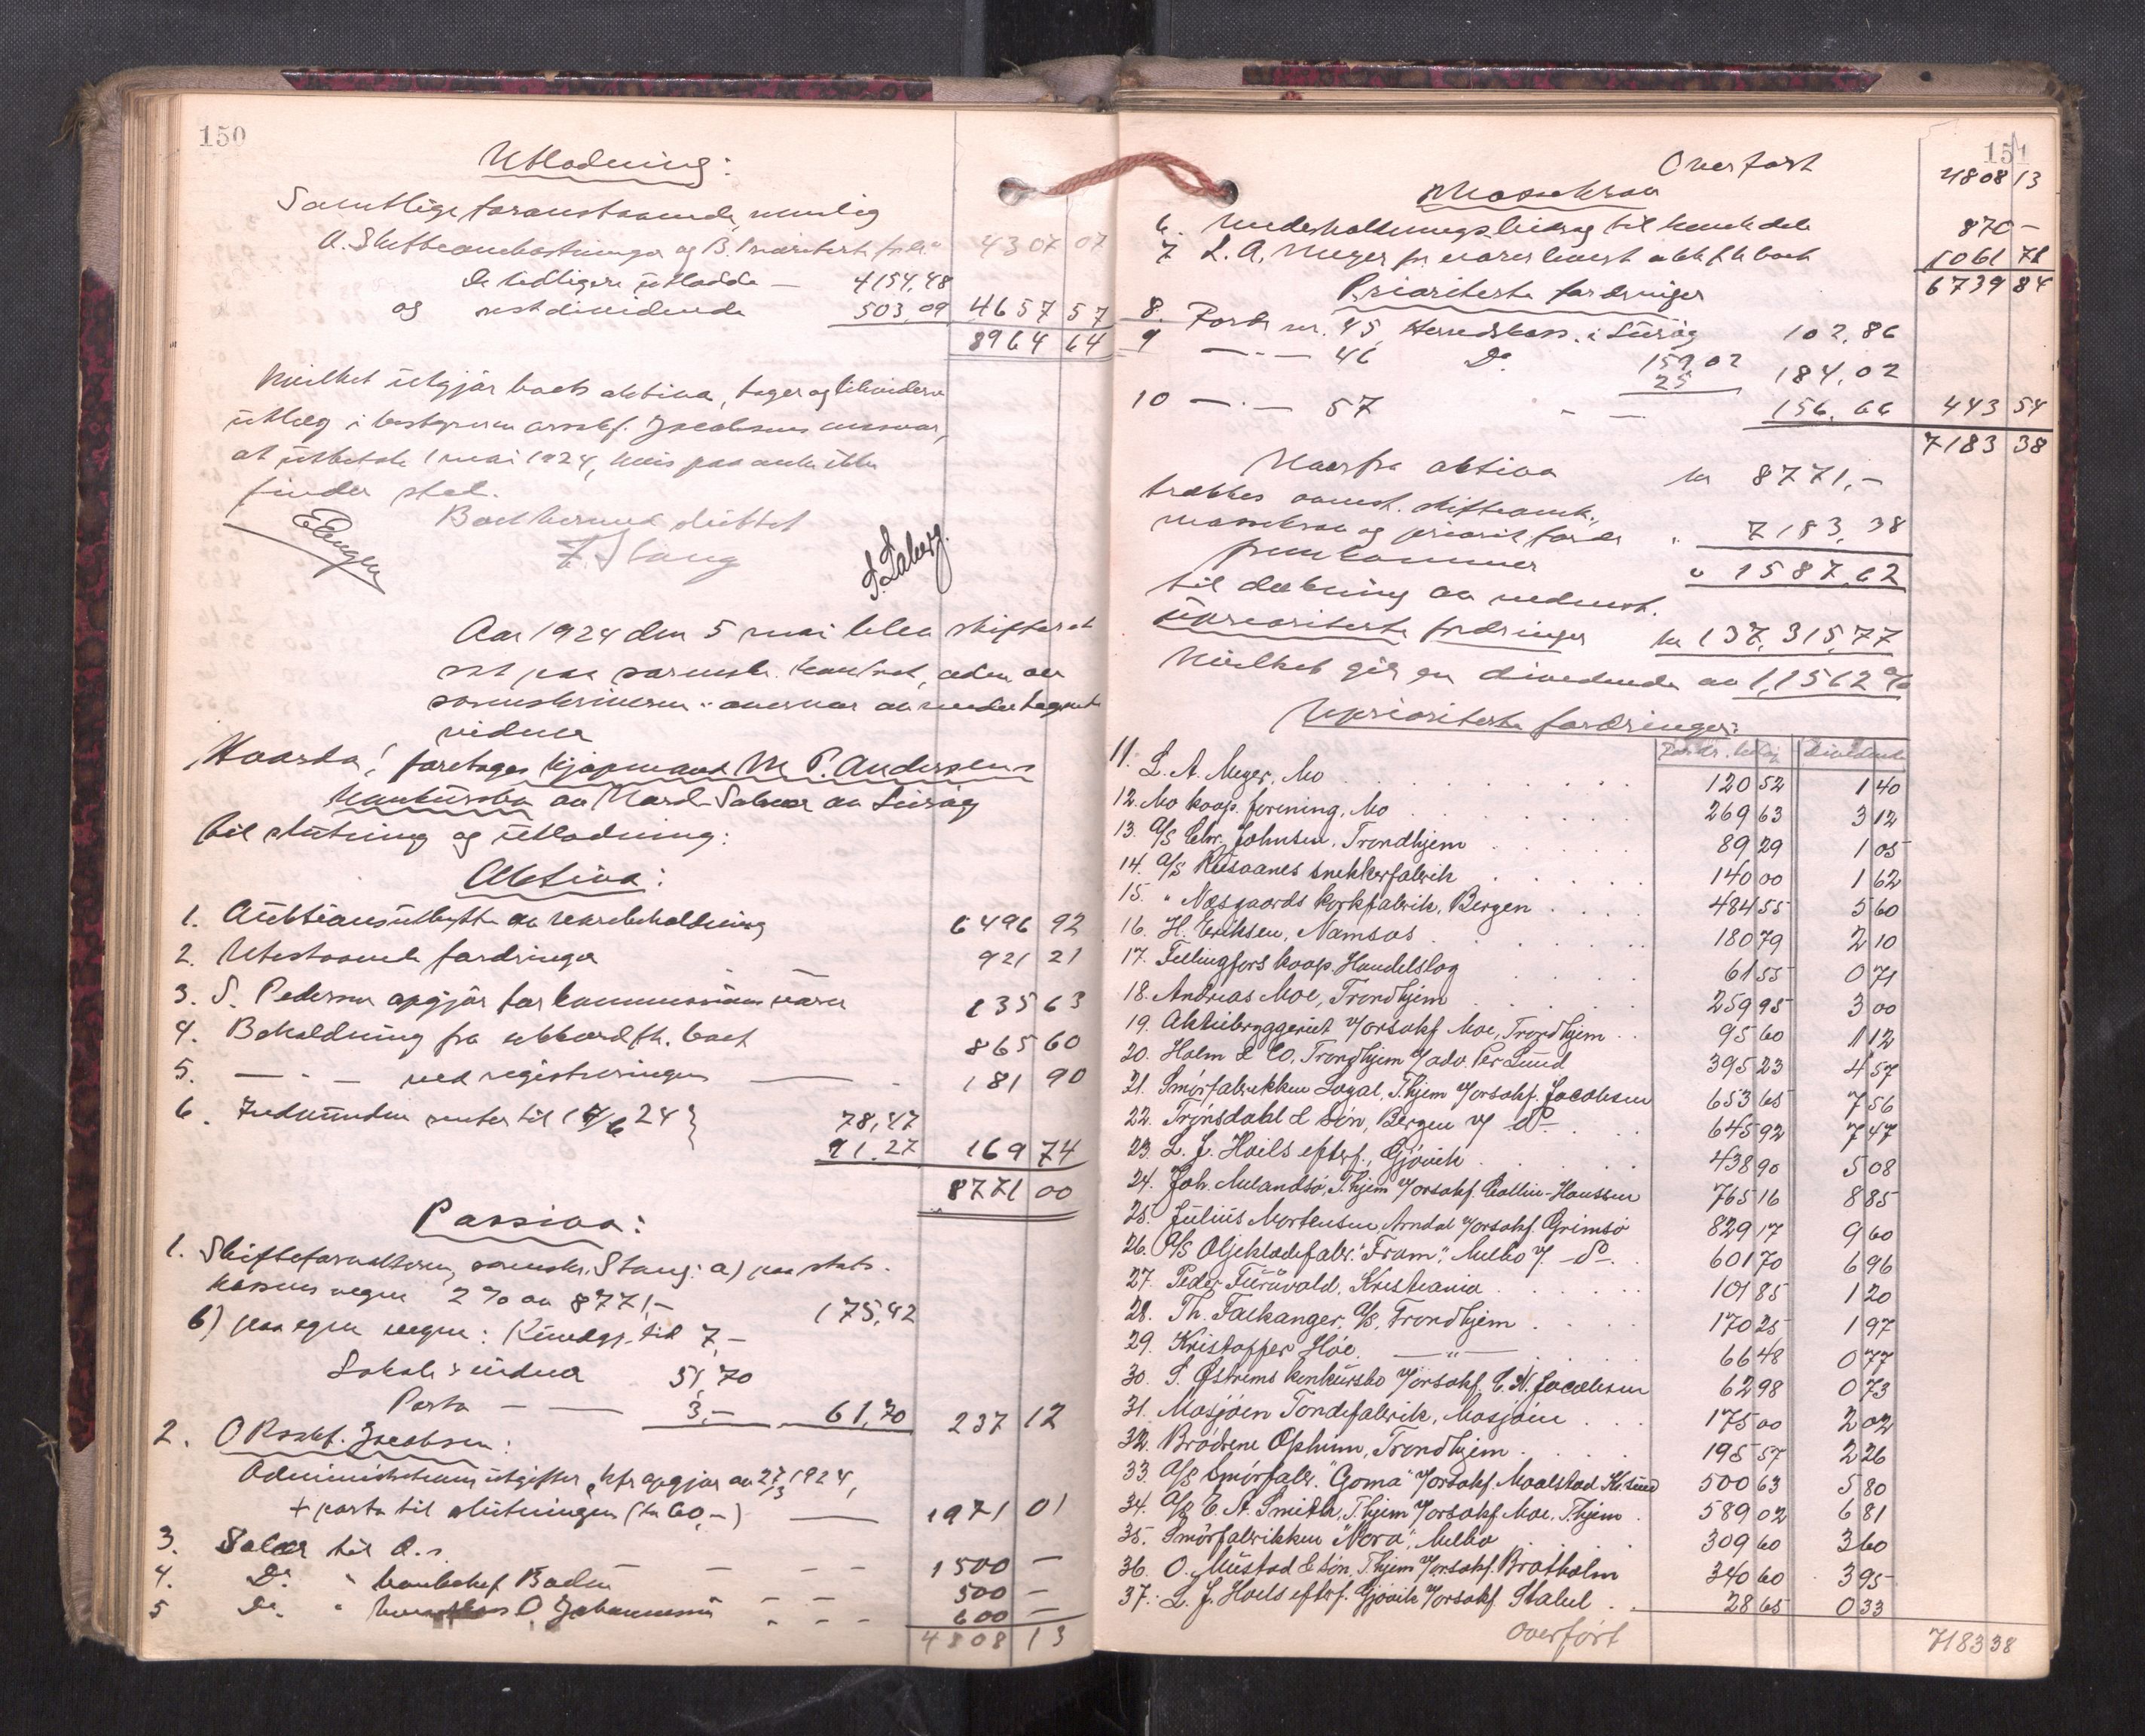 150
Utlodning:
Samtlige foranstaaende, nemlig
A. Skifteomkostninger og B. Prioritert fordr. 4307 07
De tidligere utlodde — 4154,48
og restdividende 503,09 4657 57
8964 64
hvilket utgjør boets aktiva, tages og likvideres
utlæg i bestyreren orsakf. Jacobsens ansvar,
at utbetale 1 mai 1924, hvis paaanke ikke
finder sted.
Boet hermed sluttet
F. Stang
EEngen
S. Laberg.
Aar 1924 den 5 mai blev skifteret
sat paa sorenskr. kontoret, ledet av
sorenskriveren i nærvær av undertegnede
vidner
Hvorda! foretages kjøpmand M. P. Andersens
konkursbo av Nord-Solvær av Lurøy
til slutning og utlodning:
Aktiva:
1. Auktionsutbytte av varebeholdning 6496 92
2. Utestaaende fordringer 921 21
3. S. Pedersen opgjør for kommissionsvarer 135 63
4. Beholdning fra ekkard fh. boet 865 60
5. — " — ved registreringen — 181 90
6. Indvundne renter til 15/6 24 } 78,47
91.27 169 74
8771 00
Passiva:
1. Skifteforvalteren, sorenskr. Stang: a) paa stats-
kassens vegne 2 % av 8771,- 175,42
b) paa egne vegne: Kundgj. til 7,-
Lokale & vidner 51,70
Porto — — 3,- 61,70 237 12
2. O.Rsakf. Jacobsen:
Administrationsutgifter, kfr. opgjør av 27/3 1924,
+ porto til slutningen (kr 60,-) — 1971 01
3. Salær til d.s. — — — 1500 —
4. Do. " bankchef Bodin — — 500 —
5 Do. " O. Johannesen 600 —
4808 13
151
Overført 4808 13
Massekrav
6. Underholdningsbidrag til 870 —
7. L. A. Meyer for varer levert ekkard fh boet 1061 71
6739 84
Prioriterte fordringer
8. Fordr nr. 45, Herredskass. i Lurøy 102,86
9 — " — 46 Do. 159,02
25 184,02
10 — " — 57 — — 156,66 443 54
7183 38
Herfra aktiva kr 8771,-
trækkes ovenst. skifteomk.,
massekrav og priorit. fordr. " 7183,38
fremkommer " 1587,62
til dækning av nedenst.
uprioriterte fordringer kr 137,315,77
hvilket gir en dividende av 1,1562 %
Uprioriterte fordringer:
Fordr. beløp Dividende
11. L. A. Meyer, Mo 120 52 1 40
12. Mo koop. forening, Mo 269 63 3 12
13. A/S Chr. Johnsen, Trondhjem 89 29 1 05
14. A/S Rusaanes snekkerfabrik 140 00 1 62
15. " Næsgaards korkfabrik, Bergen 484 55 5 60
16. H. Eriksen, Namsos 180 79 2 10
17. Fellingfors koop. Handelslag 61 55 0 71
18. Andreas Moe, Trondhjem 259 95 3 00
19. Aktiebryggeriet v/orsakf. Moe, Trondhjem 95 60 1 12
20. Holm & Co, Trondhjem v/adv. Per Lund 395 23 4 57
21. Smørfabrikken Loyal, T.hjem v/orsakf. Jacobsen 653 65 7 56
22. Trønsdahl & Søn, Bergen v/ —do— 645 92 7 47
23. L. J. Hoils efterf., Gjøvik 438 90 5 08
24. Joh. Melandsø, T.hjem v/orsakf. Collin-Hanssen 765 16 8 85
25. Julius Mortensen Arndal v/orsakf. Grimsø 829 17 9 60
26. A/S Oljeklædefabr. "Fram", Melbo v/. —do— 601 70 6 96
27. Peder Furuvald, Kristiania 101 85 1 20
28. Th. Falkanger, A/S, Trondhjem 170 25 1 97
29. Kristoffer Höe — " — 66 48 0 77
30. S. Østrems konkursbo v/orsakf. C. N. Jacobsen 62 98 0 73
31. Mosjøen Tøndefabrik, Mosjøen 175 00 2 02
32. Brødrene Ophum, Trondhjem 195 57 2 26
33. A/S Smørfabr. "Goma" v/orsakf. Maalstad Kr.sund 500 63 5 80
34. A/S E. A. Smith, T.hjem v/orsakf Moe. T.hjem 589 02 6 81
35. Smørfabrikken "Nora", Melbo 309 60 3 60
36. O. Mustad & Søn, T.hjem v/orsakf. Bratholm 340 60 3 95
37. L. J. Hoels efterf. Gjøvik v/orsakf. Stabel 28 65 0 33
overført 7183 38